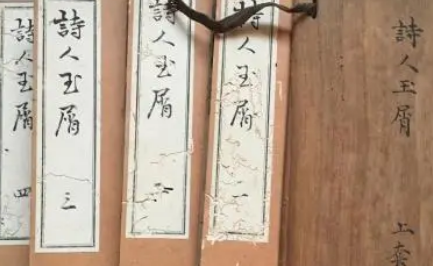 詩人玉屑
上套
詩人玉屑
一
詩人玉屑
詩人玉屑
三
詩人玉屑
四